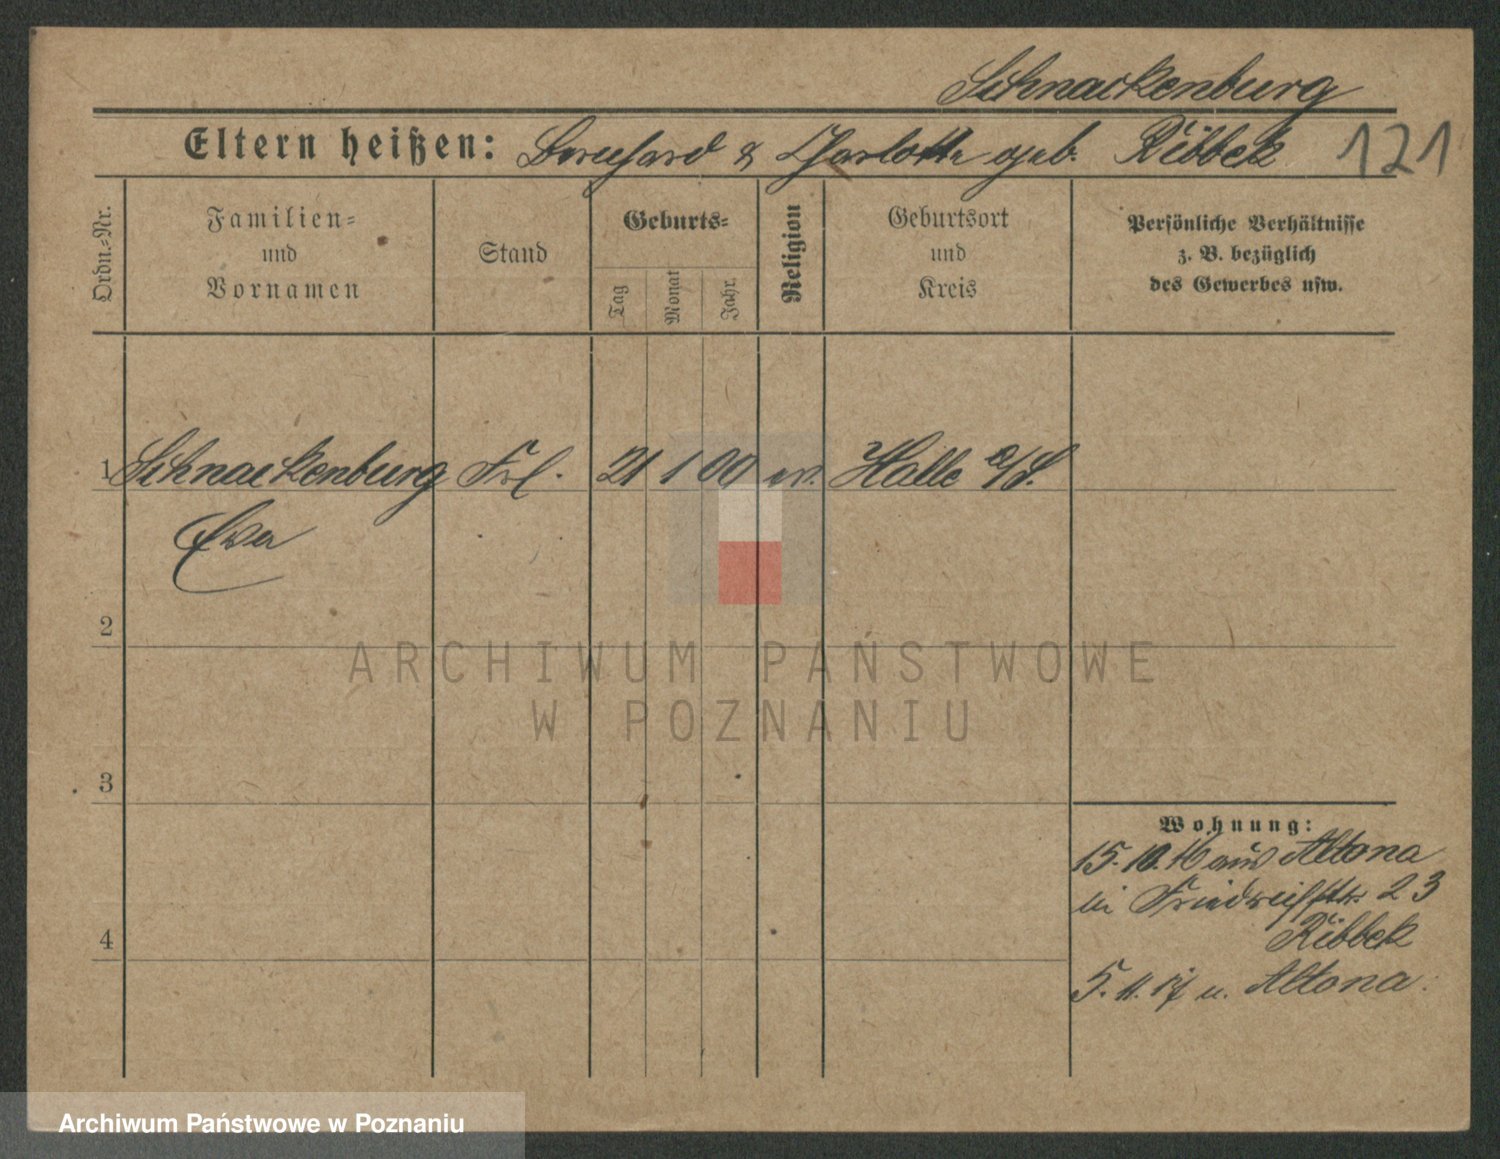 Schnackenburg
Eltern heißen: Bernhard & Charlotte geb. Ribbek 121
Ordn.-Nr.
Familien-
und
Vornamen
Stand
Geburts-
Tag
Monat
Jahr.
Religion
Geburtsort
und
Kreis
Persönliche Verhältnisse
z. B. bezüglich
des Gewerbes usw.
1 Schnackenburg Frl. 21 1 00 ev. Halle a/S.
Eva
2
3
4
Wohnung:
15.10.16 aus Altona
bei Friedrichstr. 23
Ribbek
5.11.17 n. Altona.
ARCHIWUM PAŃSTWOWE
W POZNANIU
Archiwum Państwowe w Poznaniu